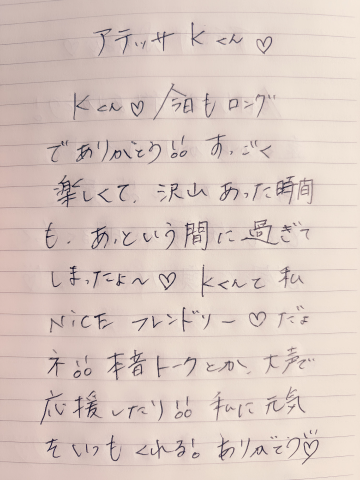 アテッサ Kくん♡
Kくん♡ 今日もロング
でありがとう!! すっごく
楽しくて、沢山あった時間
も、あっという間に過ぎて
しまったよ〜♡ Kくんて私
NiCE フレンドリー♡だよ
ネ!! 本音トークとか、大声で
応援したり!! 私に元気
をいつもくれる! ありがとう♡